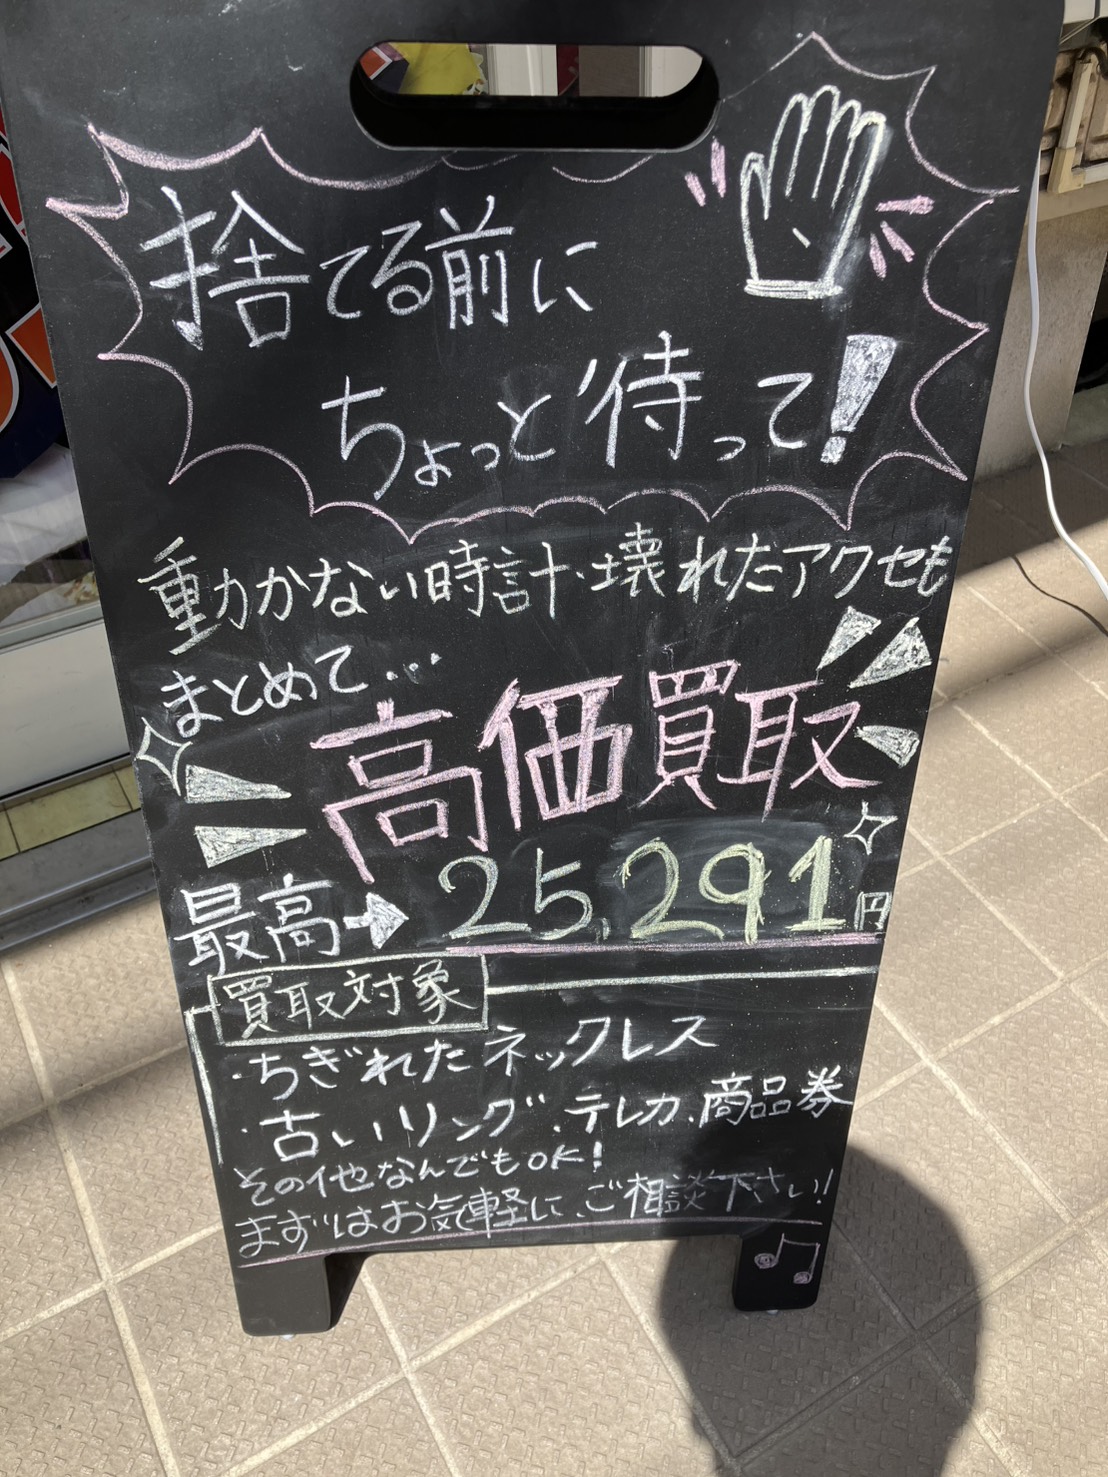 捨てる前に
ちょっと待って!
動かない時計・壊れたアクセも
まとめて...
高価買取
最高→25,291円
買取対象
・ちぎれたネックレス
・古いリング、テレカ、商品券
その他なんでもOK!
まずはお気軽に、ご相談下さい!